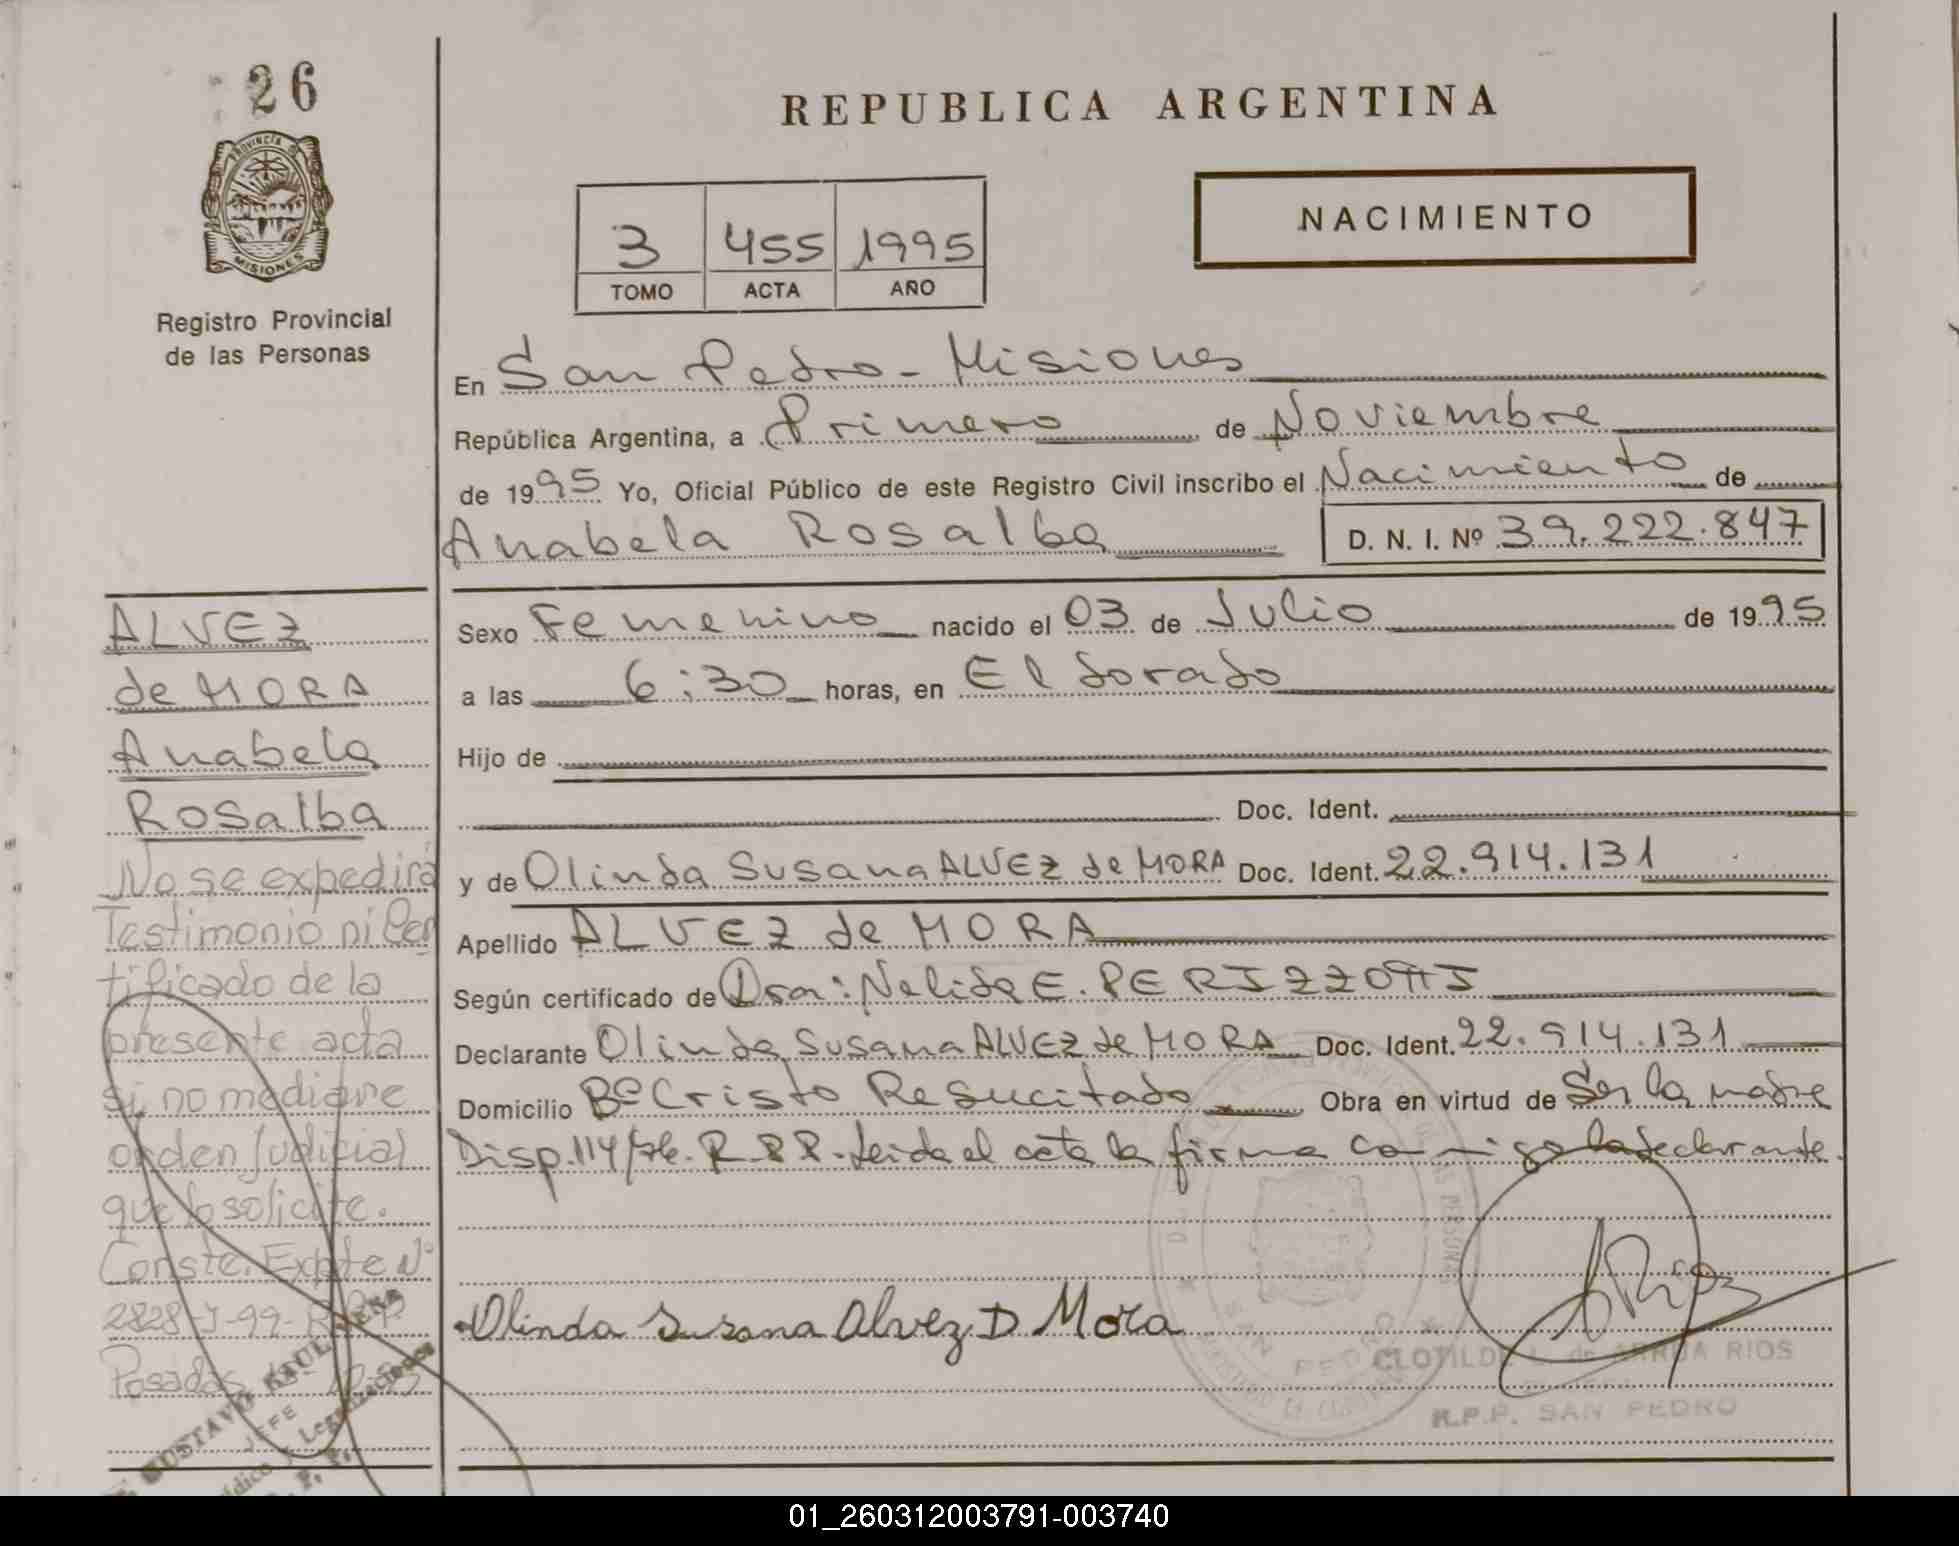 26
PROVINCIA DE
MISIONES
Registro Provincial
de las Personas
REPUBLICA ARGENTINA
3 455 1995
TOMO ACTA AÑO
NACIMIENTO
En San Pedro - Misiones
República Argentina, a Primero de Noviembre
de 1995 Yo, Oficial Público de este Registro Civil inscribo el Nacimiento de
Anabela Rosalba D. N. I. Nº 39.222.847
Sexo Femenino nacido el 03 de Julio de 1995
a las 6:30 horas, en El dorado
Hijo de
Doc. Ident.
y de Olinda Susana ALVEZ de MORA Doc. Ident. 22.914.131
Apellido ALVEZ de MORA
Según certificado de Dra: Nelida E. PERIZZOTTI
Declarante Olinda Susana ALVEZ de MORA Doc. Ident. 22.914.131
Domicilio Bº Cristo Resucitado Obra en virtud de Ser la madre
Disp. 114/76. R.P.P. Leida el acta la firma conmigo la declarante.
Olinda Susana Alvez D Mora
ARios
CLOTILDE L. de ARRUA RIOS
R.P.P. SAN PEDRO
SAN PEDRO
ALVEZ
de MORA
Anabela
Rosalba
No se expedirá
Testimonio ni Cer
tificado de la
presente acta
si no mediare
orden Judicial
que lo solicite.
Conste. Expte Nº
2828-J-99-R.P.P.
Posadas
GUSTAVO RAUL
JEFE
01_260312003791-003740